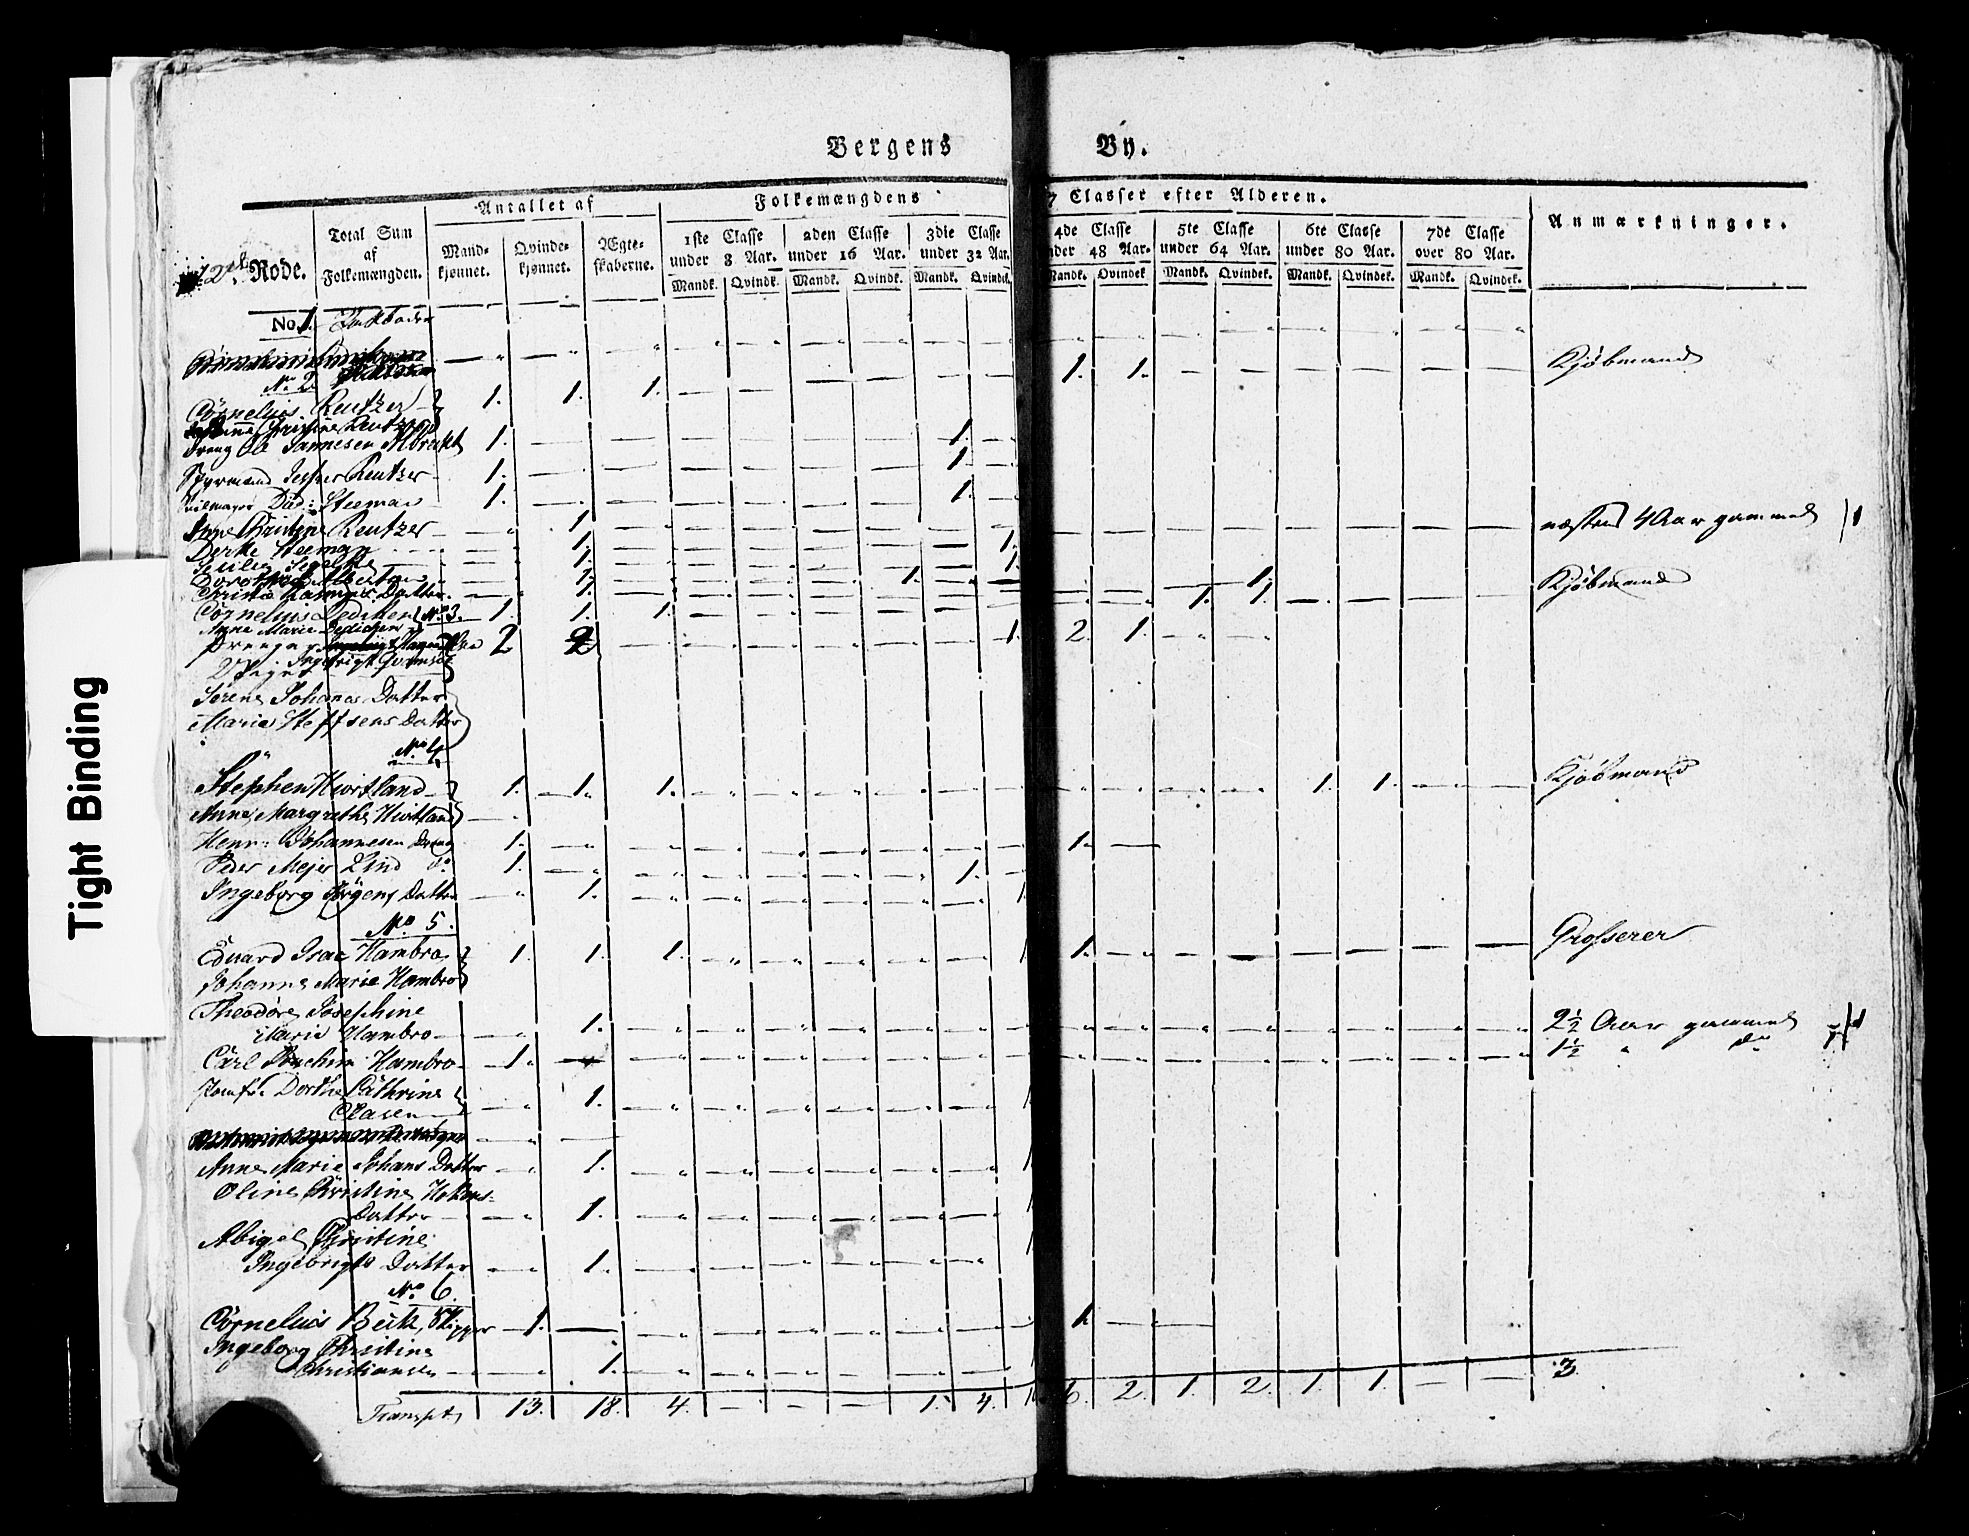 Bergens By.
12te Rode.
Total Sum af Folkemængden.
Antallet af
Mand-kjønnet.
Qvinde-kjønnet.
Ægte-skaberne.
Folkemængdens 7 Classer efter Alderen.
1ste Classe under 8 Aar.
2den Classe under 16 Aar.
3die Classe under 32 Aar.
4de Classe under 48 Aar.
5te Classe under 64 Aar.
6te Classe under 80 Aar.
7de Classe over 80 Aar.
Mandk. Qvindk. Mandk. Qvindk. Mandk. Qvindek. Mandk. Qvindek Mandk. Qvindek. Mandk. Qvindek. Mandk. Qvindek.
Anmærkninger.
No. 1.
No. 2
Cornelius Reutzer 1. 1. 1. 1. 1. Kjøbmand
Christine Reutzer
Dreng Ole Jannesen Albrekt 1. 1.
Styrmand Jesper Reutzer 1. 1.
Did: Steeman 1. 1.
Anne Christine Reutzer 1. næsten 4 Aar gammel
Dorte Steeman 1. 1.
1. 1.
1. 1.
Datter 1.
Cornelius Dedichen No. 3. 1. 1. 1. 1. 1. Kjøbmand
Anne Marie Dedichen
2 2 1 2. 1.
2 Piger
Sørene Johannes Datter
Maria Steffsens Datter
No. 4
Stephen Hiortland 1. 1. 1. 1. 1. Kjøbmand
Anne Margrethe Hiortland
Henr: Johannesen Dreng 1. 1.
Peder Mejer Lind do 1. 1.
Ingeborg Jørgens Datter 1.
No. 5.
Eduard Isac Hambro 1. 1. 1. 1. Grosserer
Johanne Marie Hambro
Theodore Josephine
Marie Hambro 1. 2½ Aar gammel
Carl Joachim Hambro 1. 1½ " do
Jomfr: Dorthe Cathrine
Clasen 1.
Anne Marie Johans Datter 1.
Oline Christine
Datter 1.
Abigel Christine
Ingebrigts Datter 1.
No. 6.
Cornelius Beck, Skipper 1. 1.
Ingeborg Christine
Christiansen 1.
Transpt 13. 18. 4. 1. 4. 6. 2. 1. 2. 1. 1. 3
Tight Binding